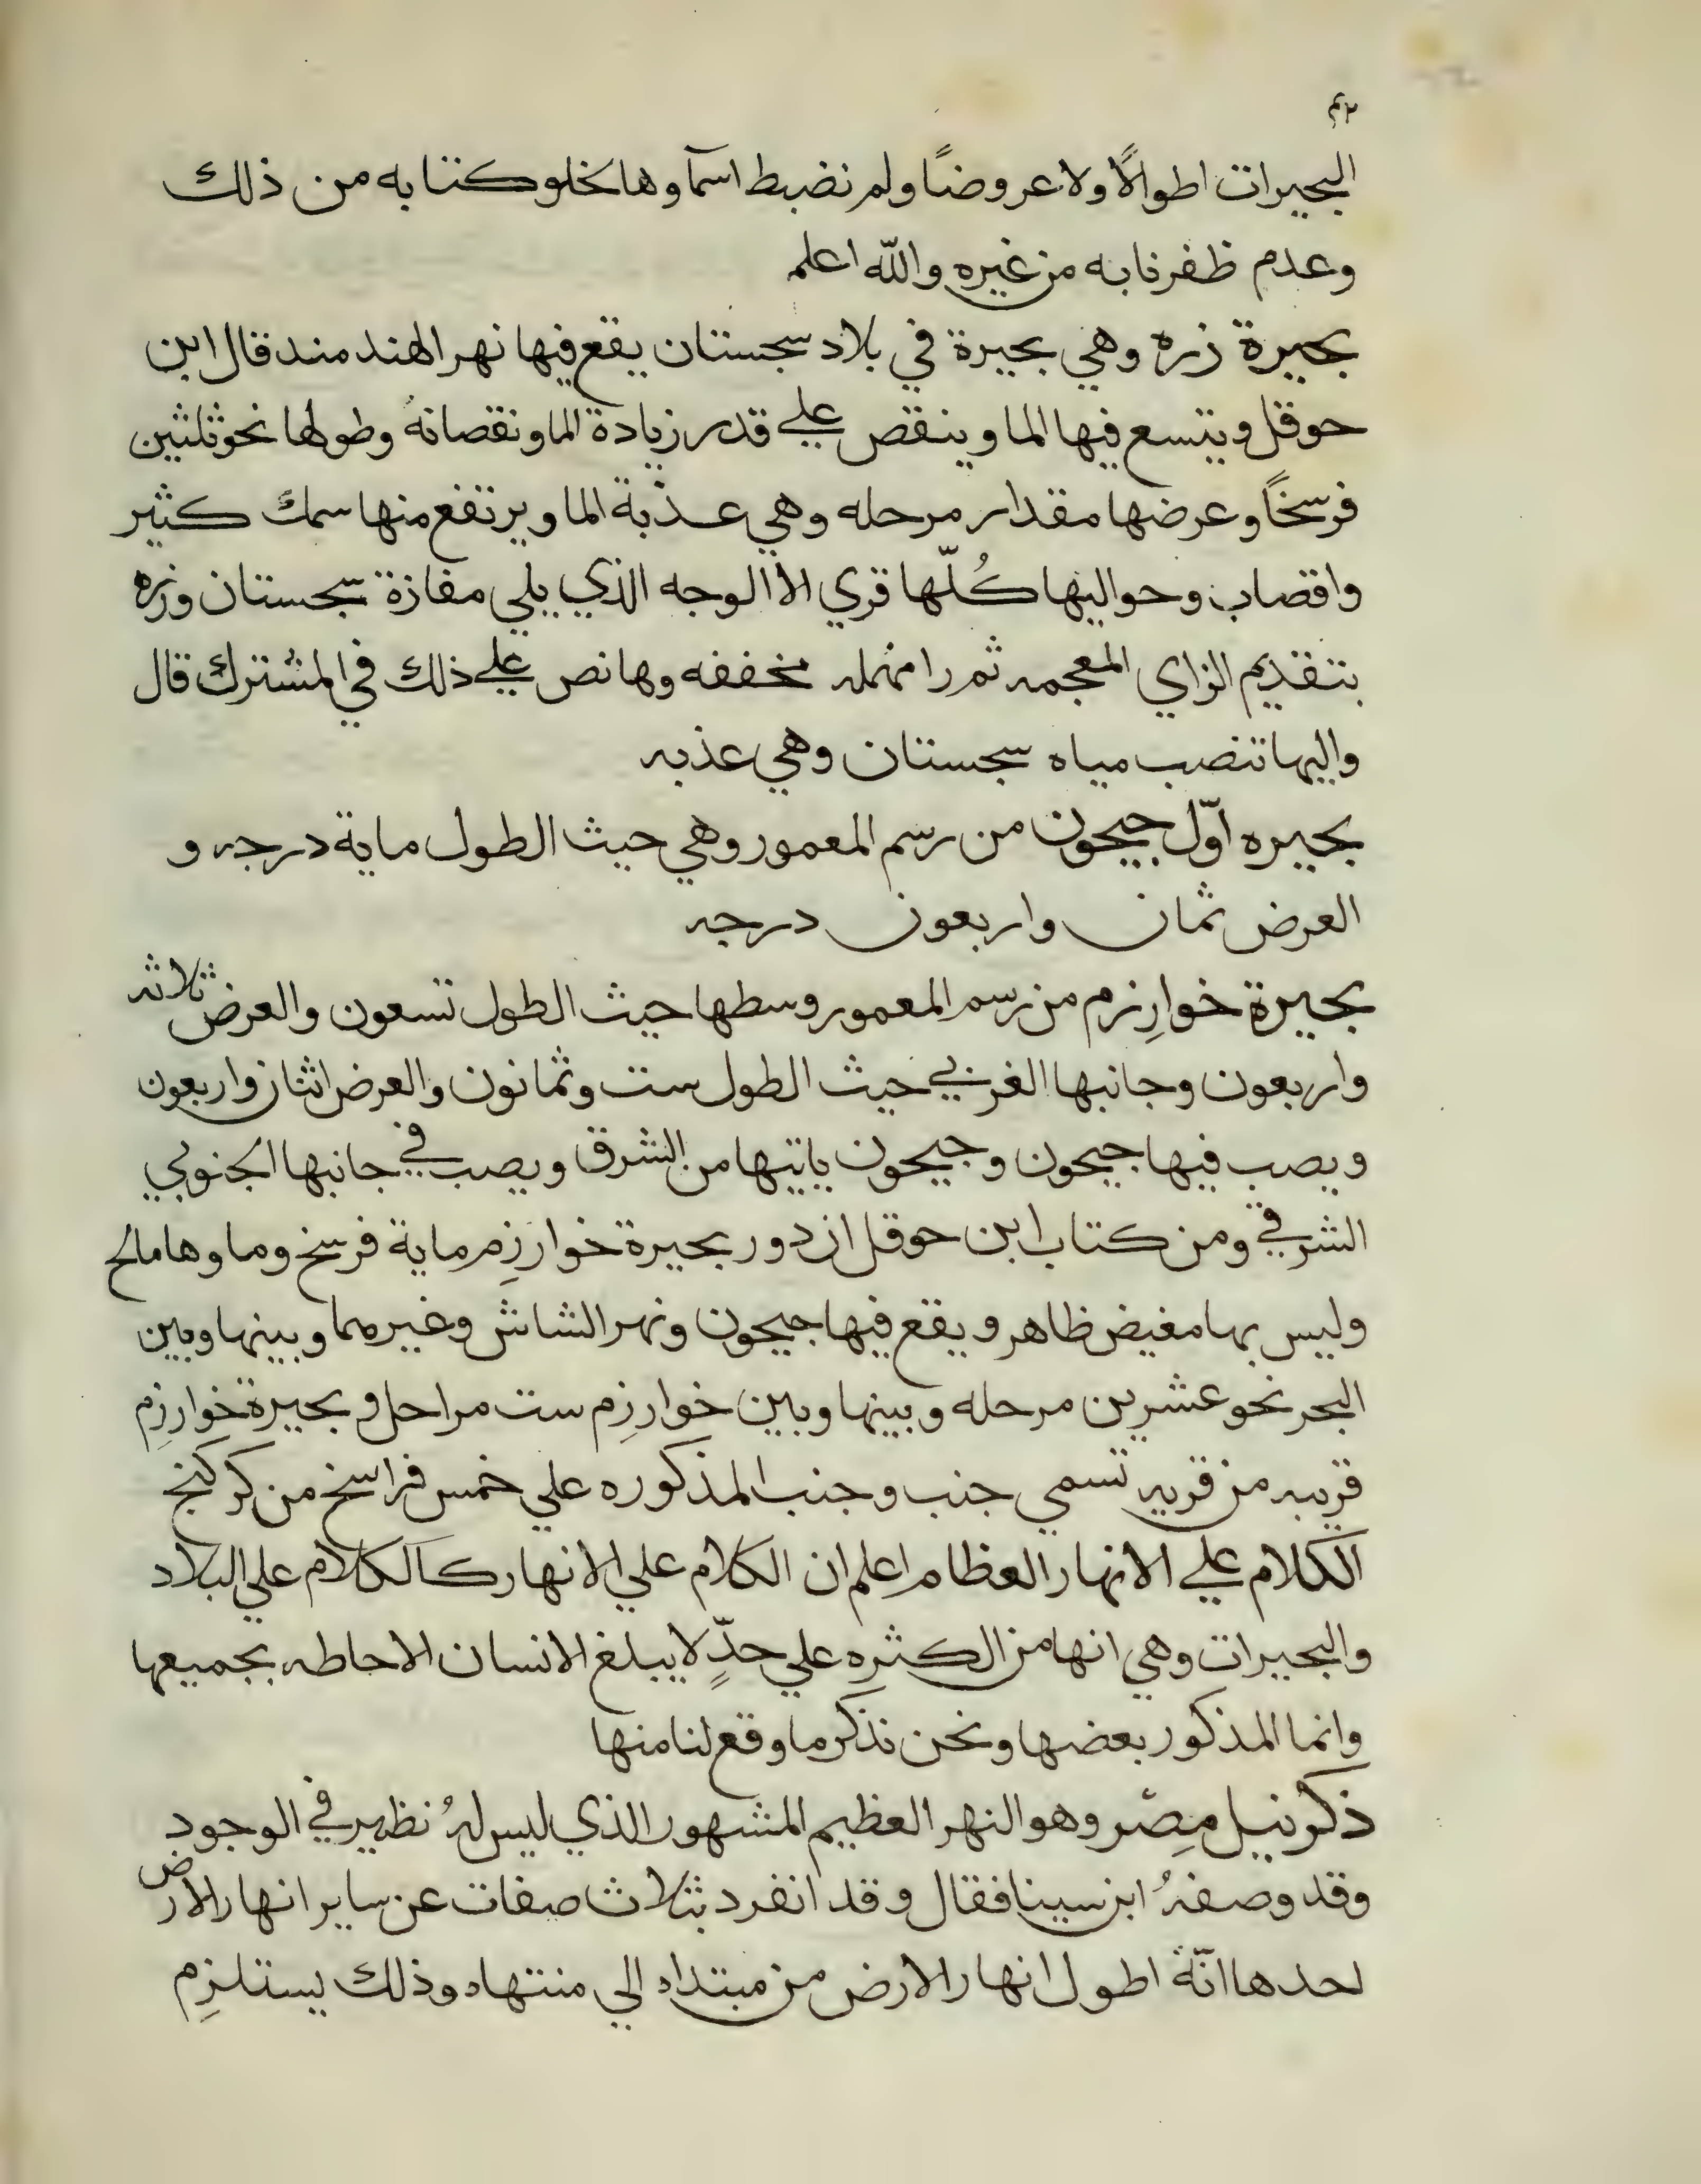 ٤٢
البحيرات اطوالًا ولا عروضًا ولم نضبط اسمآوها لخلو كتابه من ذلك
وعدم ظفرنا به من غيره والله اعلم
بحيرة زره وهي بحيرة في بلاد سجستان يقع فيها نهر الهندمند قال ابن
حوقل ويتسع فيها الما وينقص علي قدر زيادة الما ونقصانهُ وطولها نحو ثلثين
فرسخًا وعرضها مقدار مرحله وهي عذبة الما ويرتفع منها سمكٌ كثير
واقصاب وحواليها كُلّها قري الا الوجه الذي يلي مفازة سجستان وزره
بتقديم الزاي المعجمه ثم را مهمله مخففه وها نص علي ذلك في المشترك قال
واليها تنصب مياه سجستان وهي عذبه
بحيره اوّل جيحون من رسم المعمور وهي حيث الطول ماية درجه و
العرض ثمان واربعون درجه
بحيرة خوارِزم من رسم المعمور وسطها حيث الطول تسعون والعرض ثلاثه
واربعون وجانبها الغربي حيث الطول ست وثمانون والعرض اثنان واربعون
ويصب فيها جيحون وجيحون ياتيها من الشرق ويصب في جانبها الجنوبي
الشرقي ومن كتاب ابن حوقل ان دور بحيرة خوارزِم ماية فرسخ وماوها مالح
وليس بها مغيض ظاهر ويقع فيها جيحون ونهر الشاش وغيرهما وبينها وبين
البحر نحو عشرين مرحله وبينها وبين خوارزِم ست مراحل و بحيرة خوارزِم
قريبه من قريه تسمي جنب وجنب المذكوره علي خمس فراسخ من كركنج
الكلام علي الانهار العظام اعلم ان الكلام علي الانهار كالكلام علي البلاد
والبحيرات وهي انها من الكثره علي حدٍّ لا يبلغ الانسان الاحاطه بجميعها
وانما المذكور بعضها ونحن نذكر ما وقع لنا منها
ذكر نيل مِصْر وهو النهر العظيم المشهور الذي ليس لهُ نظير في الوجود
وقد وصفهُ ابن سينا فقال وقد انفرد بثلاث صفات عن ساير انهار الارض
احدها انّهُ اطول انهار الارض من مبتداه الي منتهاه وذلك يستلزِم